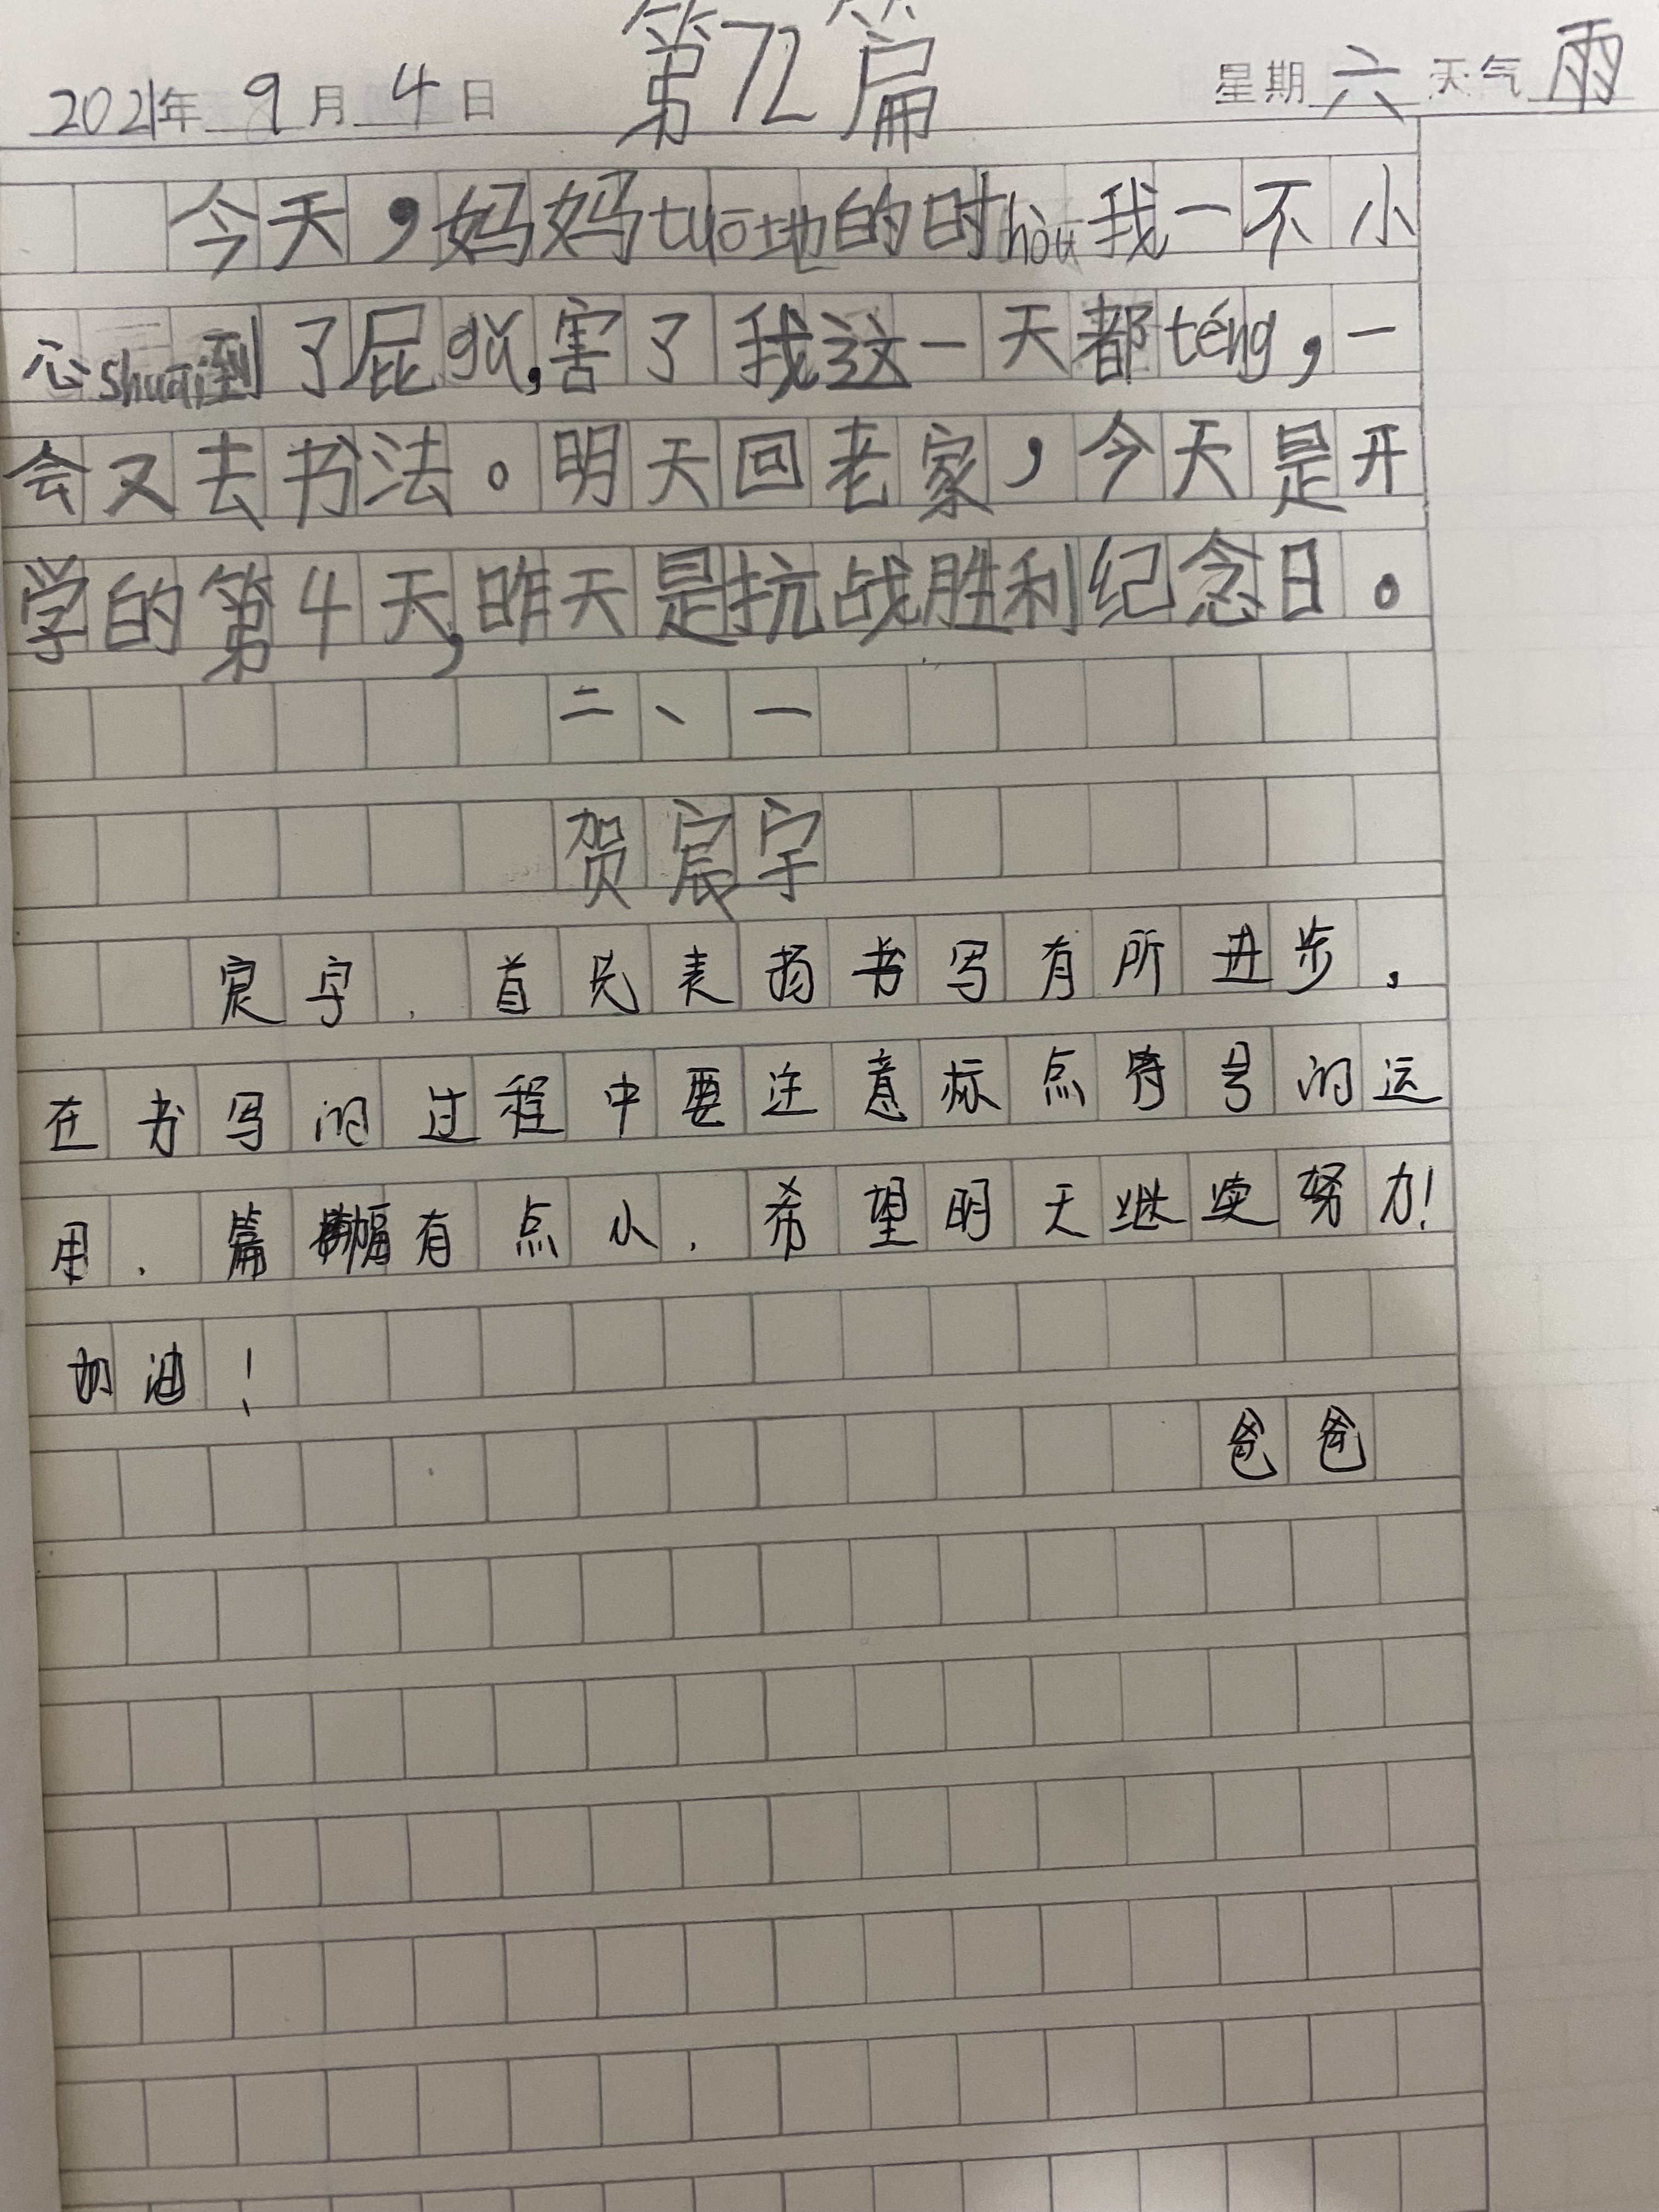 第72篇
2021年 9月 4日 星期六 天气 雨
今天，妈妈tuō地的时hòu我一不小
心shuāi到了屁gǔ，害了我这一天都téng，一
会又去书法。明天回老家，今天是开
学的第4天，昨天是抗战胜利纪念日。
二、一
贺宸宇
宸宇，首先表扬书写有所进步，
在书写的过程中要注意标点符号的运
用，篇幅有点小，希望明天继续努力！
加油！
爸爸